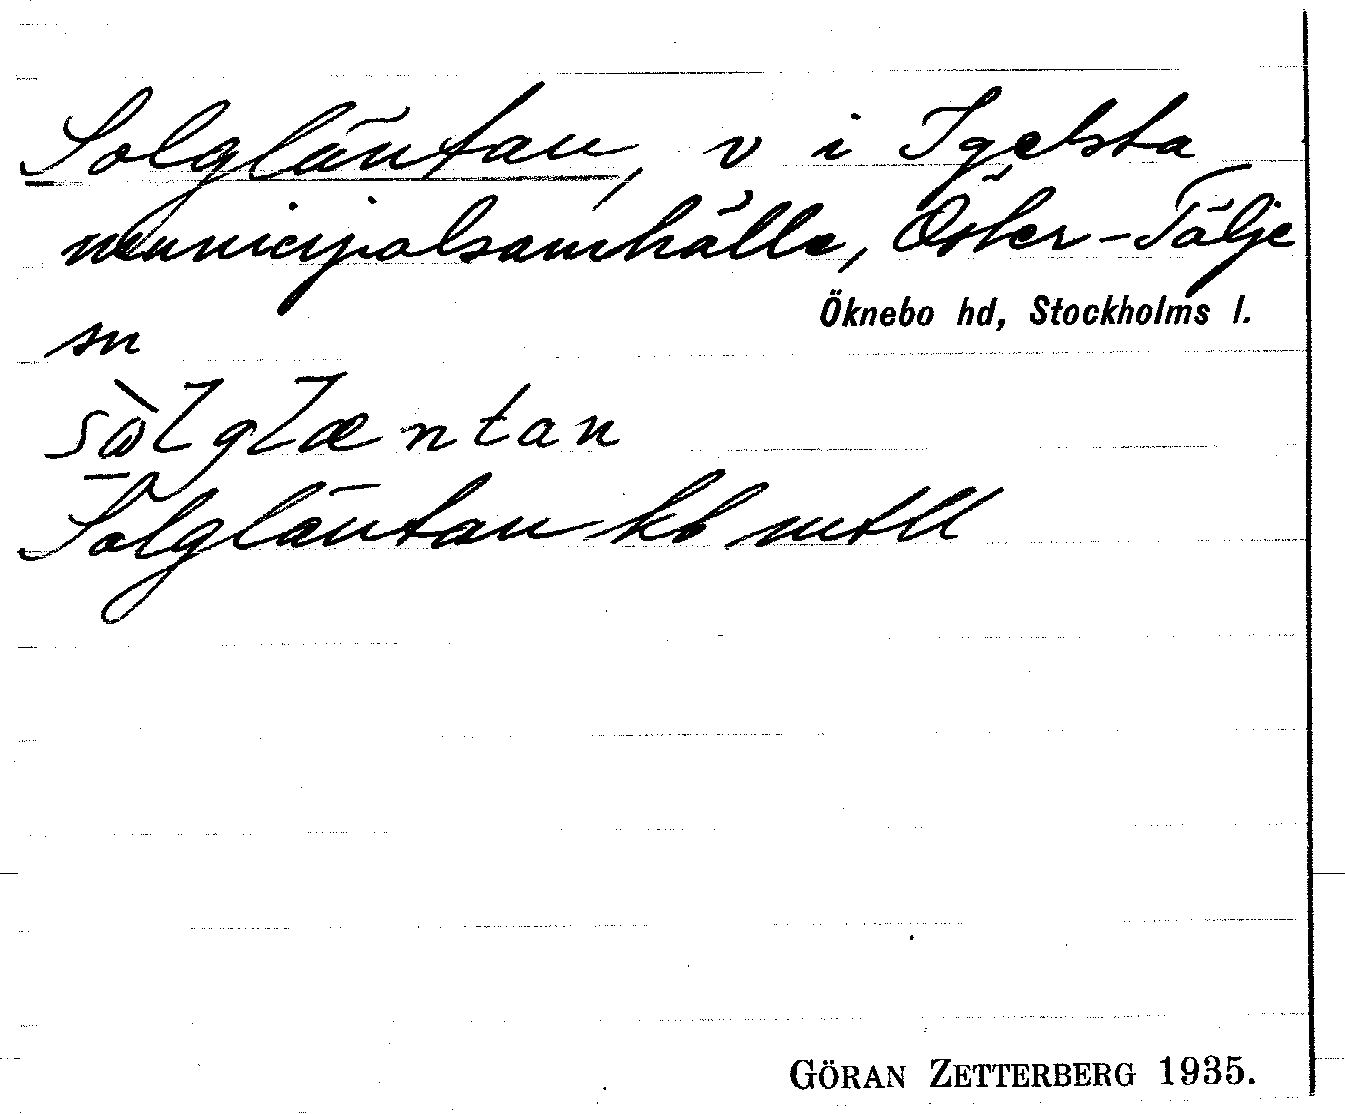 Solgläntan, v i Igelsta
municipalsamhälle, Öster-Tälje
Öknebo hd, Stockholms l.
sn
Solgläntan kb mtll
GÖRAN ZETTERBERG 1935.